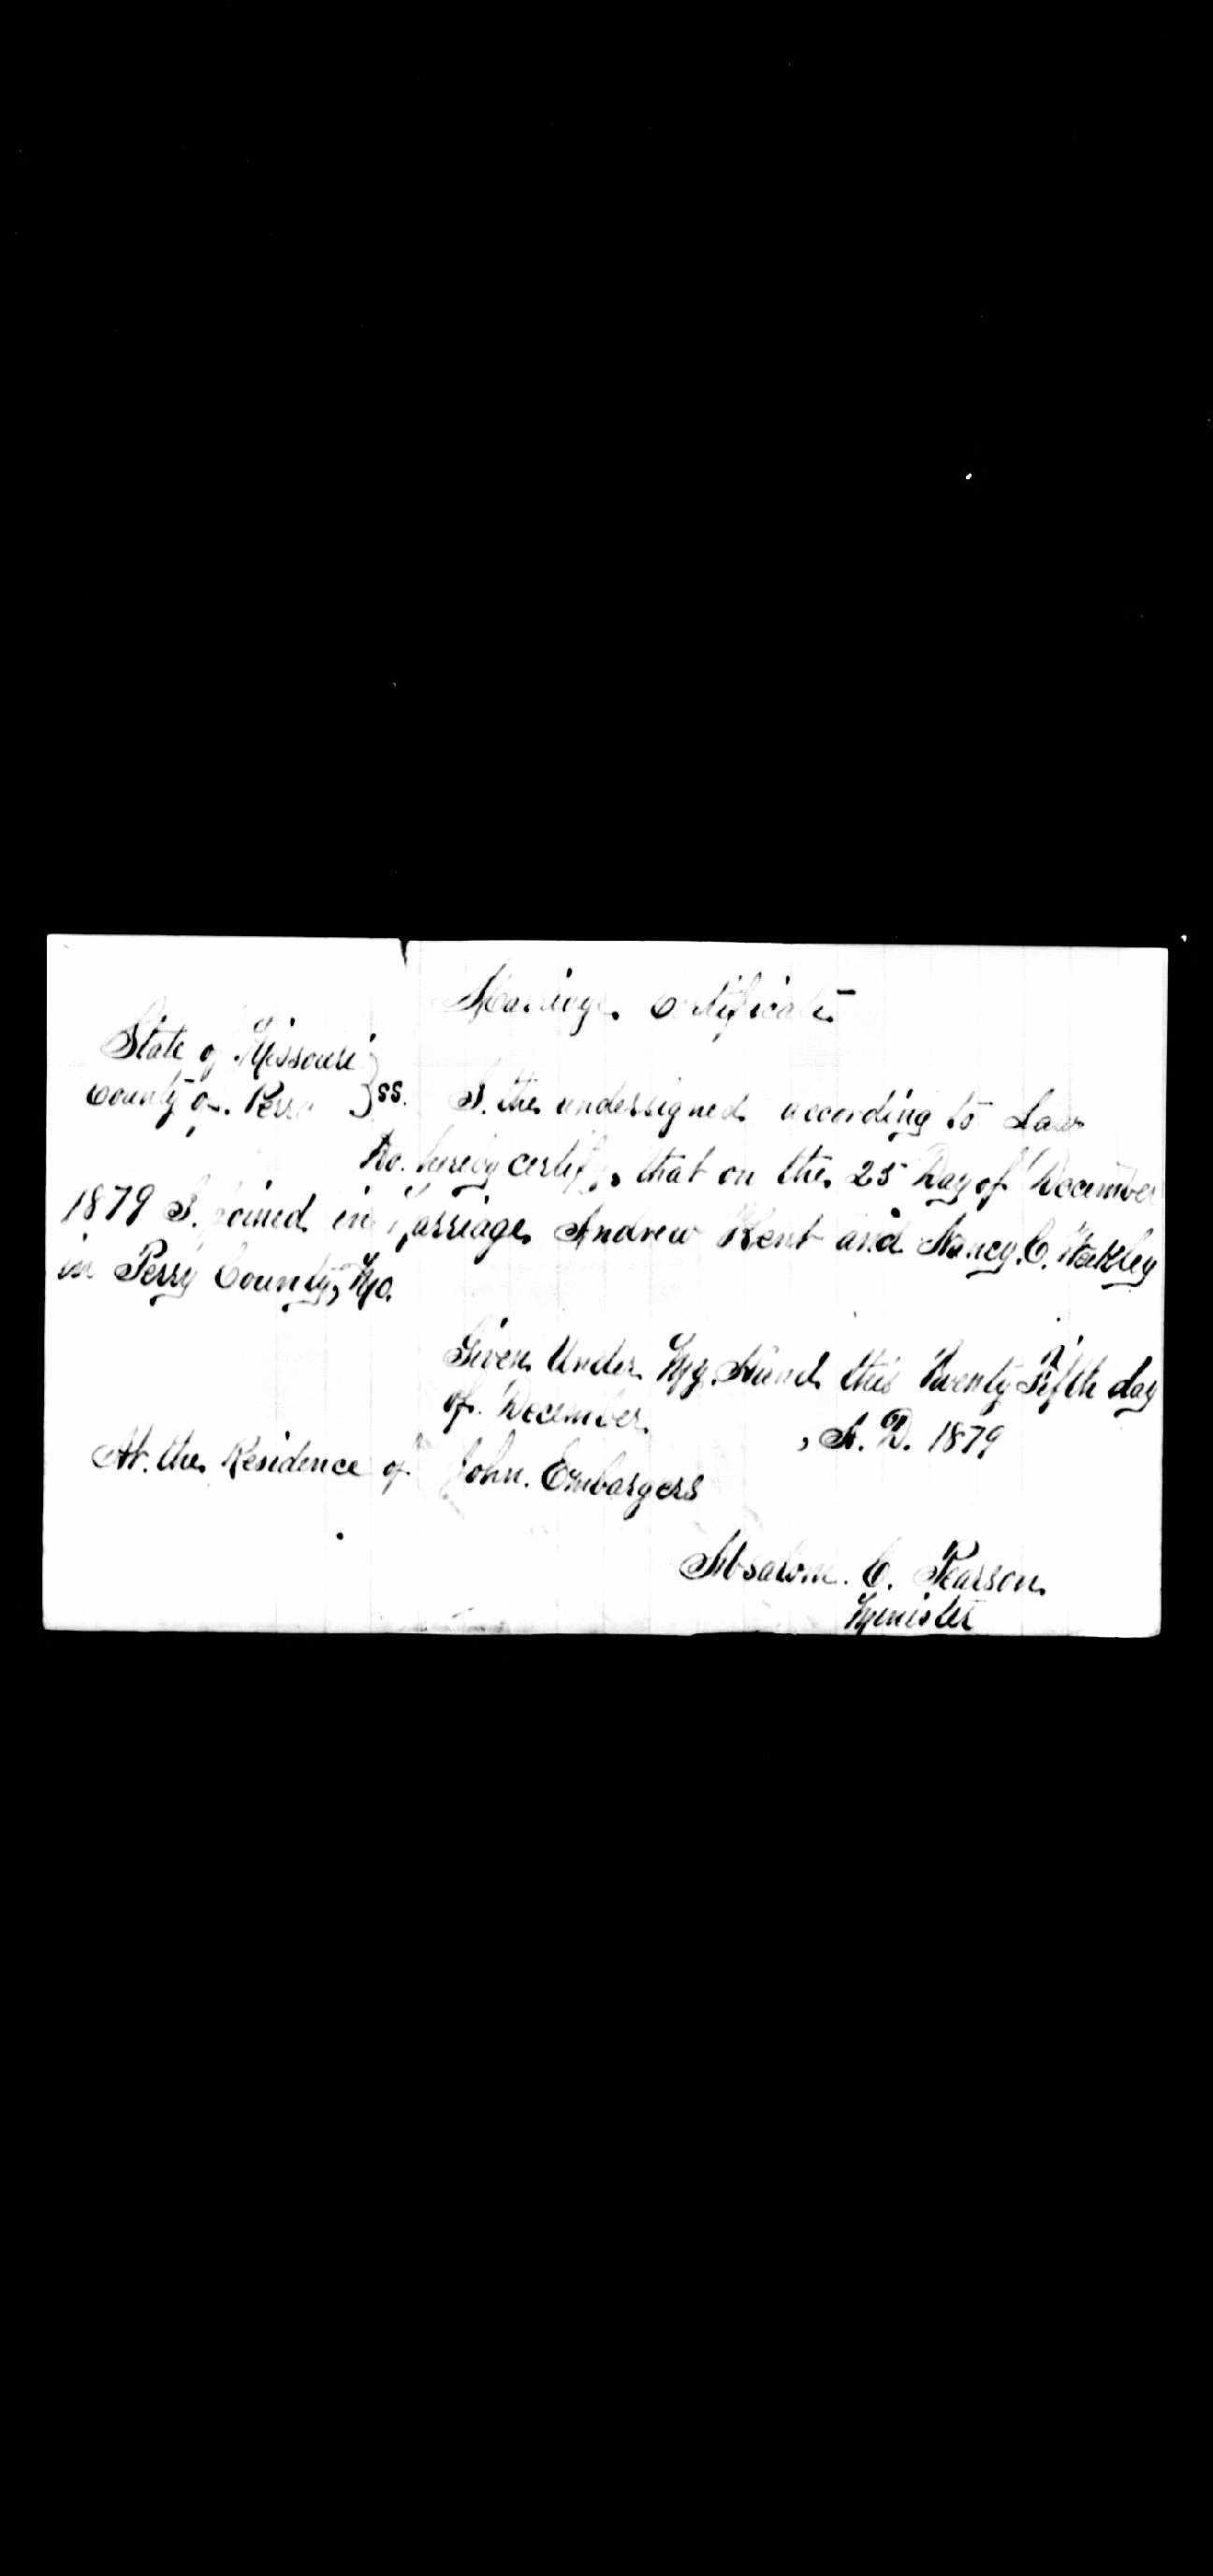 Marriage Certificate
State of Missouri
County of Perry } ss. I. the undersigned according to Law
Do. hereby certify, that on the 25 Day of December
1879 I. joined in Marriage Andrew Kent and Nancy. C. Weakley
in Perry County, Mo.
Given Under My Hand this Twenty Fifth day
of December , A. D. 1879
At. the Residence of John. Embargers
Absalom. C. Pearson
Minister